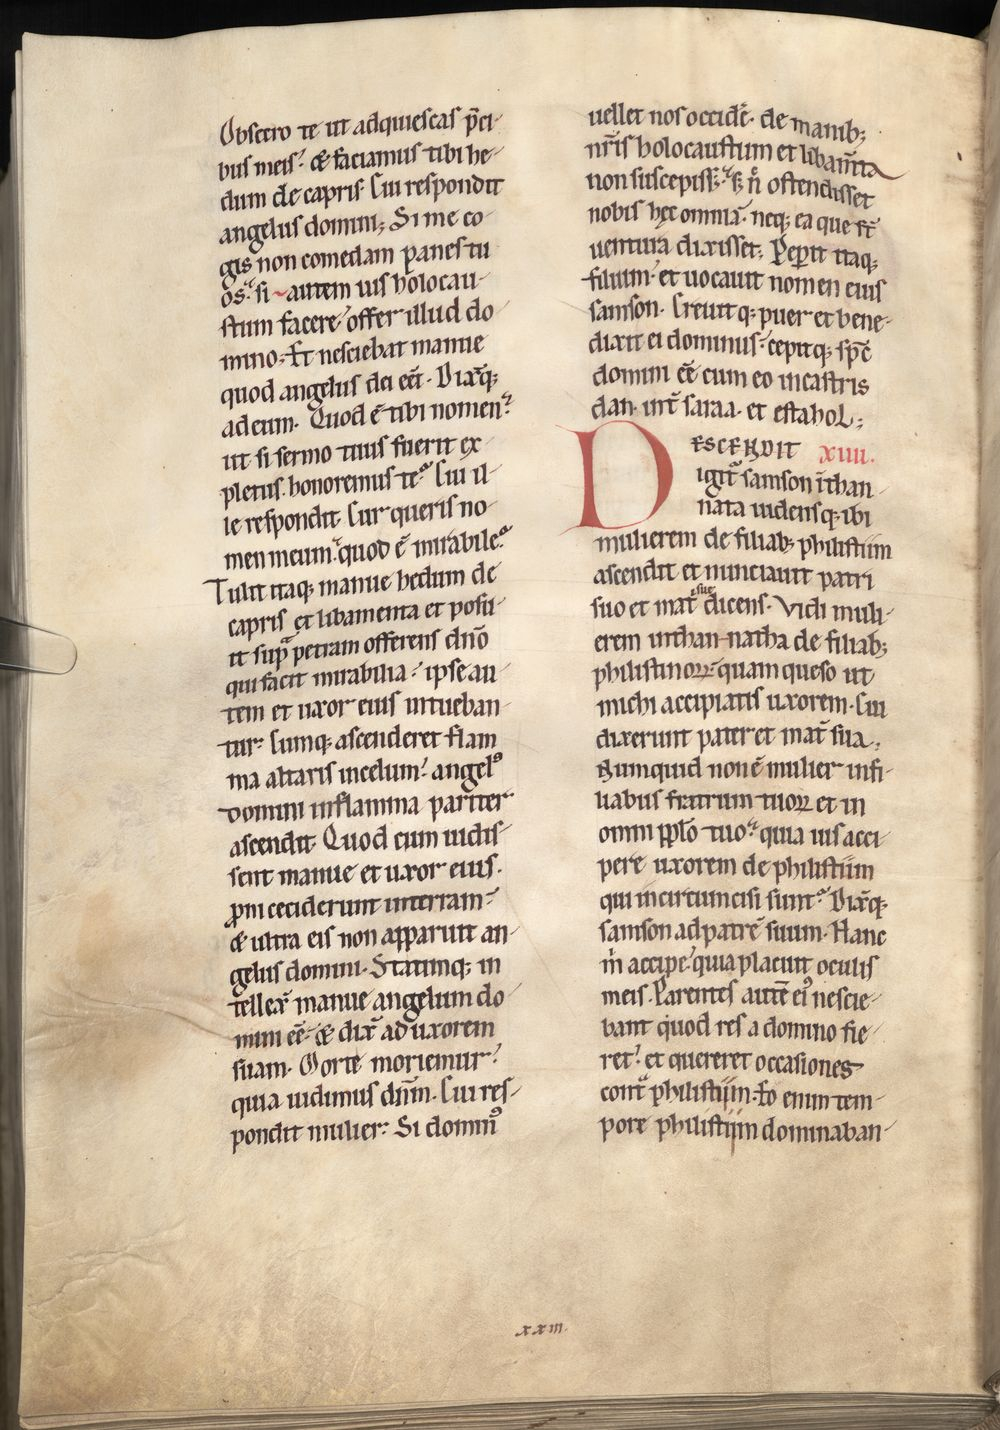 Obsecro te ut adquiescas p̄ci-
bus meis? & faciamus tibi he-
dum de capris. Cui respondit
angelus domini; Si me co-
gis non comedam panes tu
os: si autem uis holocau-
stum facere offer illud do
mino. Et nesciebat manue
quod angelus dei eēt. Dixq;
ad eum. Quod ē tibi nomen?
ut si sermo tuus fuerit ex-
pletus. honoremus te? Cui il-
le respondit. Cur queris no-
men meum quod ē mirabile?
Tulit itaq; manue hedum de
capris et libamenta et posu-
it sup̄ petram offerens dn̄o
qui facit mirabilia: ipse au-
tem et uxor eius intueban-
tur. Cumq; ascenderet flam
ma altaris in celum? angelꝰ
domini in flamma pariter
ascendit. Quod cum uidis-
sent manue et uxor eius.
proni ceciderunt in terram?
& ultra eis non apparuit an-
gelus domini. Statimq; in
tellex̄ manue angelum do-
mini eē. & dix̄ ad uxorem
suam. Morte moriemur?
quia uidimus dn̄m. Cui res-
pondit mulier: Si dominꝰ
uellet nos occidē. de manib;
nr̄is holocaustum et libam̄ta
non suscepiss;. s; n̄ ostendisset
nobis hęc omnia. neq; ea que st̄
uentura dixisset; Peperit itaq;
filium. et uocauit nomen eius
samson. Creuitq; puer et bene-
dixit ei dominus. cepitq; sp̄c
domini eē cum eo in castris
dan. int̄ saraa. et estahol;
DESCENDIT XIIII.
igit̄ samson ī than-
nata uidensq; ibi
mulierem de filiab; philistiim
ascendit et nunciauit patri
suo et mat̄ sue dicens. Vidi muli-
erem in than natha de filiab;
philistinoꝝ. quam queso ut
michi accipiatis uxorem. Cui
dixerunt pater et mat̄ sua;
Numquid non ē mulier in fi-
liabus fratrum tuoꝝ et in
omni pp̄lo tuo: quia uis acci
pere uxorem de philistiim
qui incircumcisi sunt? Dix̄q;
samson ad patrē suum. Hanc
m̄ accipe quia placuit oculis
meis. Parentes autē eiꝰ nescie-
bant quod res a domino fie-
ret? et quereret occasiones
cont̄ philistijm. Eo enim tem-
pore philistijm dominaban-
xxiii.